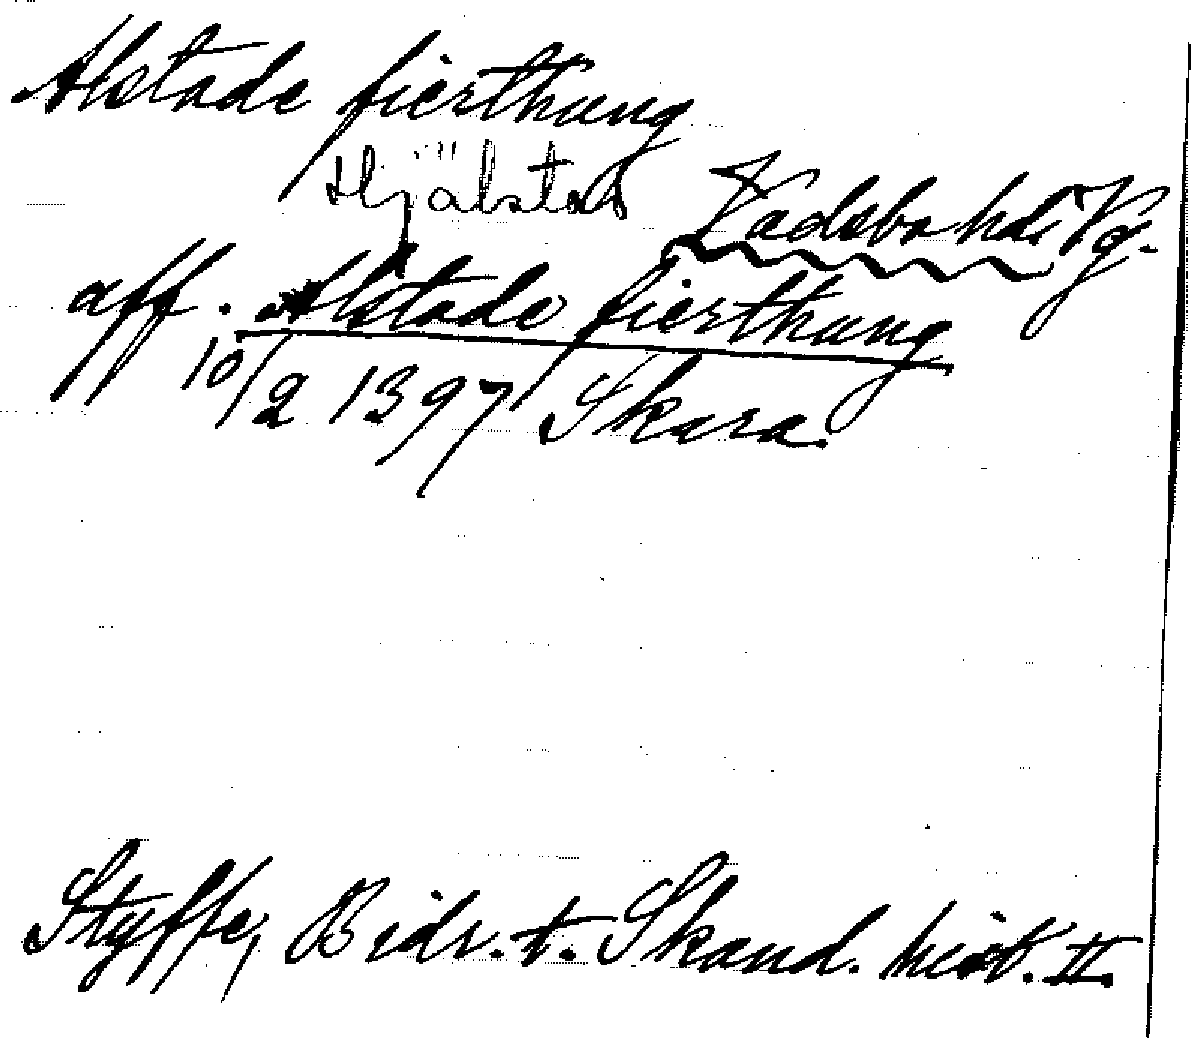 Alstade fierthung
Hjälstad
Vadsbo hd. Vg.
aff. Alstade fierthung
10/2 1397 Skara.
Styffe, Bidr. t. Skand. hist. II.